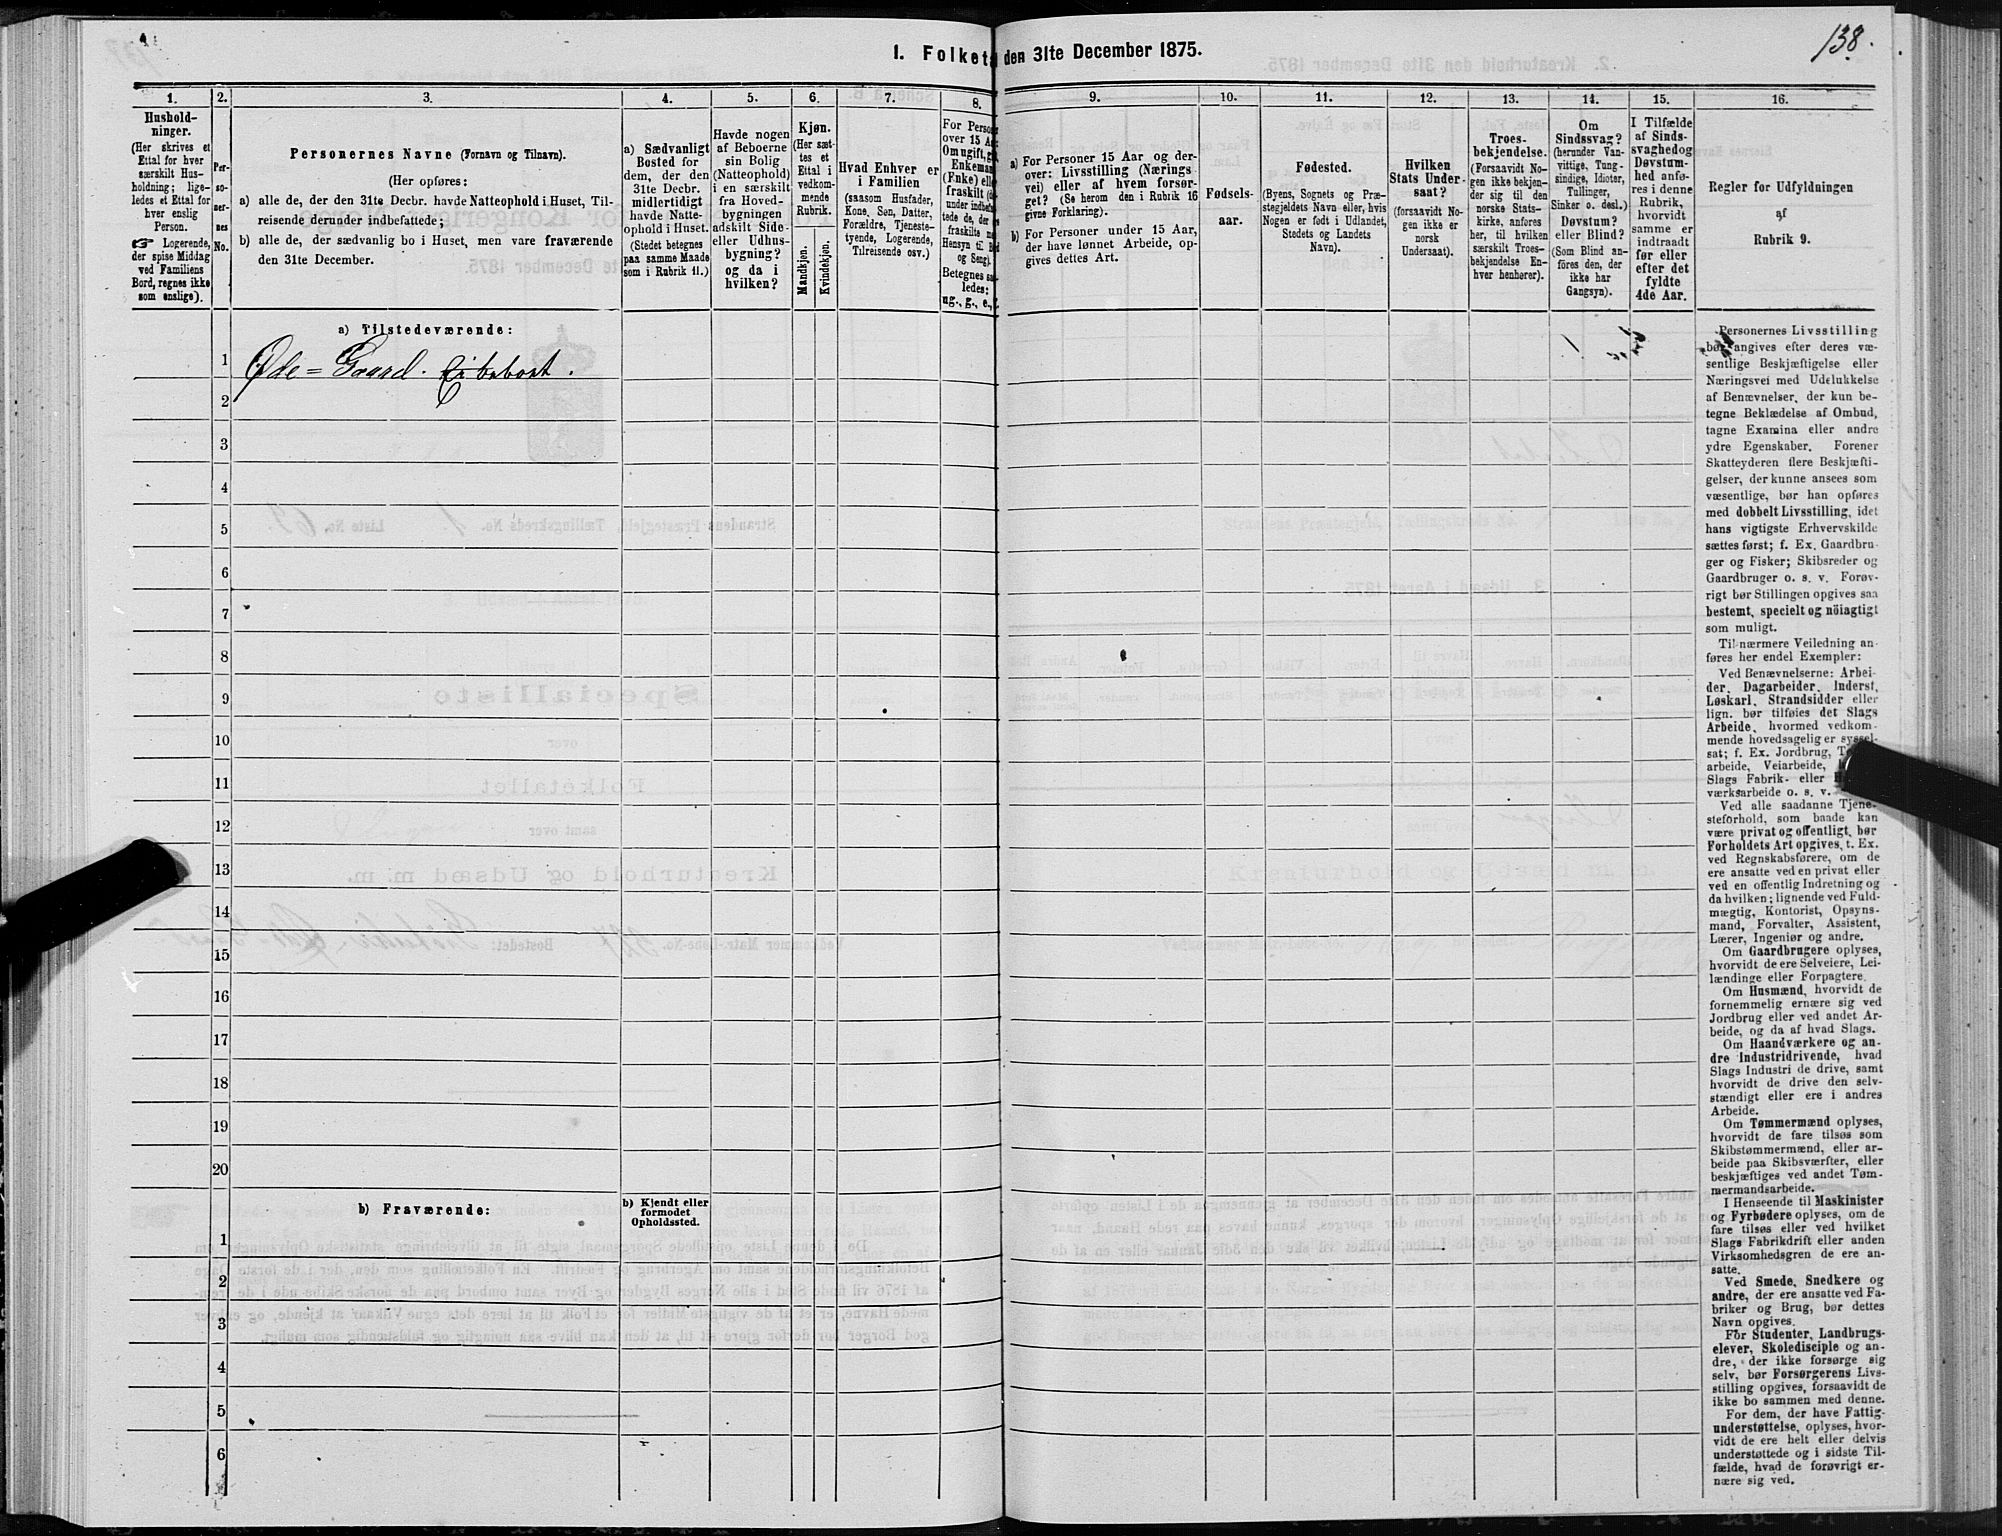 138.
1. Folketa den 31te December 1875.
1.
2.
3.
4.
5.
6.
7.
8.
9.
10.
11.
12.
13.
14.
15.
16.
Hushold-
ninger.
(Her skrives et
Ettal for hver
særskilt Hus-
holdning; lige-
ledes et Ettal for
hver enslig
Person.
☞ Logerende,
der spise Middag
ved Familiens
Bord, regnes ikke
som enslige).
Per-
so-
ner-
nes
No.
Personernes Navne (Fornavn og Tilnavn).
(Her opføres:
a) alle de, der den 31te Decbr. havde Natteophold i Huset, Til-
reisende derunder indbefattede;
b) alle de, der sædvanlig bo i Huset, men vare fraværende
den 31te December.
a) Sædvanligt
Bosted for
dem, der den
31te Decbr.
midlertidigt
havde Natte-
ophold i Huset.
(Stedet betegnes
paa samme Maade
som i Rubrik 11.)
Havde nogen
af Beboerne
sin Bolig
(Natteophold)
i en særskilt
fra Hoved-
bygningen
adskilt Side-
eller Udhus-
bygning?
og da i
hvilken?
Kjøn.
(Her sæt-
tes et
Ettal i
vedkom-
mende
Rubrik.
Mandkjøn.
Kvindekjøn.
Hvad Enhver er
i Familien
(saasom Husfader,
Kone, Søn, Datter,
Forældre, Tjeneste-
tyende, Logerende,
Tilreisende osv.)
For Perso
over 15 Aa
Om ugift, g
Enkeman
(Enke) ell
fraskilt (d
under indbefa
tede de, der
fraskilte m
Hensyn til B
og Seng).
Betegnes sa
ledes:
ug., g., e.,
a) For Personer 15 Aar og der-
over: Livsstilling (Nærings
vei) eller af hvem forsør-
get? (Se herom den i Rubrik 16
givne Forklaring).
b) For Personer under 15 Aar,
der have lønnet Arbeide, op-
gives dettes Art.
Fødsels-
aar.
Fødested.
(Byens, Sognets og Præ-
stegjeldets Navn eller, hvis
Nogen er født i Udlandet,
Stedets og Landets
Navn).
Hvilken
Stats Under-
saat?
(forsaavidt No-
gen ikke er
norsk
Undersaat).
Troes-
bekjendelse.
(Forsaavidt No-
gen ikke bekjen-
der sig til den
norske Stats-
kirke, anføres
her, til hvilken
særskilt Troes-
bekjendelse En-
hver henhører).
Om
Sindssvag?
(herunder Van-
vittige, Tung-
sindige, Idioter,
Tullinger,
Sinker o. desl.)
Døvstum?
eller Blind?
(Som Blind an-
føres den, der
ikke har
Gangsyn).
I Tilfælde
af Sinds-
svaghed og
Døvstum-
hed anfø-
res i denne
Rubrik,
hvorvidt
samme er
indtraadt
før eller
efter det
fyldte
4de Aar.
Regler for Udfyldningen
af
Rubrik 9.
a) Tilstedeværende:
1
Øde = Gaard.
2
3
4
5
6
7
8
9
10
11
12
13
14
15
16
17
18
19
20
b) Fraværende:
b) Kjendt eller
formodet
Opholdssted.
1
2
3
4
5
6
Personernes Livsstilling
bør angives efter deres væ-
sentlige Beskjæftigelse eller
Næringsvei med Udelukkelse
af Benævnelser, der kun be-
tegne Beklædelse af Ombud,
tagne Examina eller andre
ydre Egenskaber. Forener
Skatteyderen flere Beskjæfti-
gelser, der kunne ansees som
væsentlige, bør han opføres
med dobbelt Livsstilling, idet
hans vigtigste Erhvervskilde
sættes først; f. Ex. Gaardbru-
ger og Fisker; Skibsreder og
Gaardbruger o. s. v. Forøv-
rigt bør Stillingen opgives saa
bestemt, specielt og nöiagtigt
som muligt.
Til nærmere Veiledning an-
føres her endel Exempler:
Ved Benævnelserne: Arbei-
der, Dagarbeider, Inderst,
Løskarl, Strandsidder eller
lign. bør tilføies det Slags
Arbeide, hvormed vedkom-
mende hovedsagelig er syssel-
sat; f. Ex. Jordbrug, T
arbeide, Veiarbeide,
Slags Fabrik- eller
værksarbeide o. s. v.
Ved alle saadanne Tjene-
steforhold, som baade kan
være privat og offentligt, bør
Forholdets Art opgives, t. Ex.
ved Regnskabsførere, om de
ere ansatte ved en privat eller
ved en offentlig Indretning og
da hvilken; lignende ved Fuld-
mægtig, Kontorist, Opsyns-
mand, Forvalter, Assistent,
Lærer, Ingeniør og andre.
Om Gaardbrugere oplyses,
hvorvidt de ere Selveiere, Lei-
lændinge eller Forpagtere.
Om Husmænd, hvorvidt de
fornemmelig ernære sig ved
Jordbrug eller ved andet Ar-
beide, og da af hvad Slags.
Om Haandværkere og an-
dre Industridrivende, hvad
Slags Industri de drive, samt
hvorvidt de drive den selv-
stændigt eller ere i andres
Arbeide.
Om Tømmermænd oplyses,
hvorvidt de fare tilsøs som
Skibstømmermænd, eller ar-
beide paa Skibsværfter, eller
beskjæftiges ved andet Tøm-
mermandsarbeide.
I Henseende til Maskinister
og Fyrbødere oplyses, om de
fare tilsøs eller ved hvilket
Slags Fabrikdrift eller anden
Virksomhedsgren de ere an-
satte.
Ved Smede, Snedkere og
andre, der ere ansatte ved Fa-
briker og Brug, bør dettes
Navn opgives.
For Studenter, Landbrugs-
elever, Skoledisciple og an-
dre, der ikke forsørge sig
selv, bør Forsørgerens Livs-
stilling opgives, forsaavidt de
ikke bo sammen med denne.
For dem, der have Fattig-
understøttelse, oplyses, hvor-
vidt de ere helt eller delvis
understøttede og i sidste Til-
fælde, hvad de forøvrigt er-
nære sig ved.